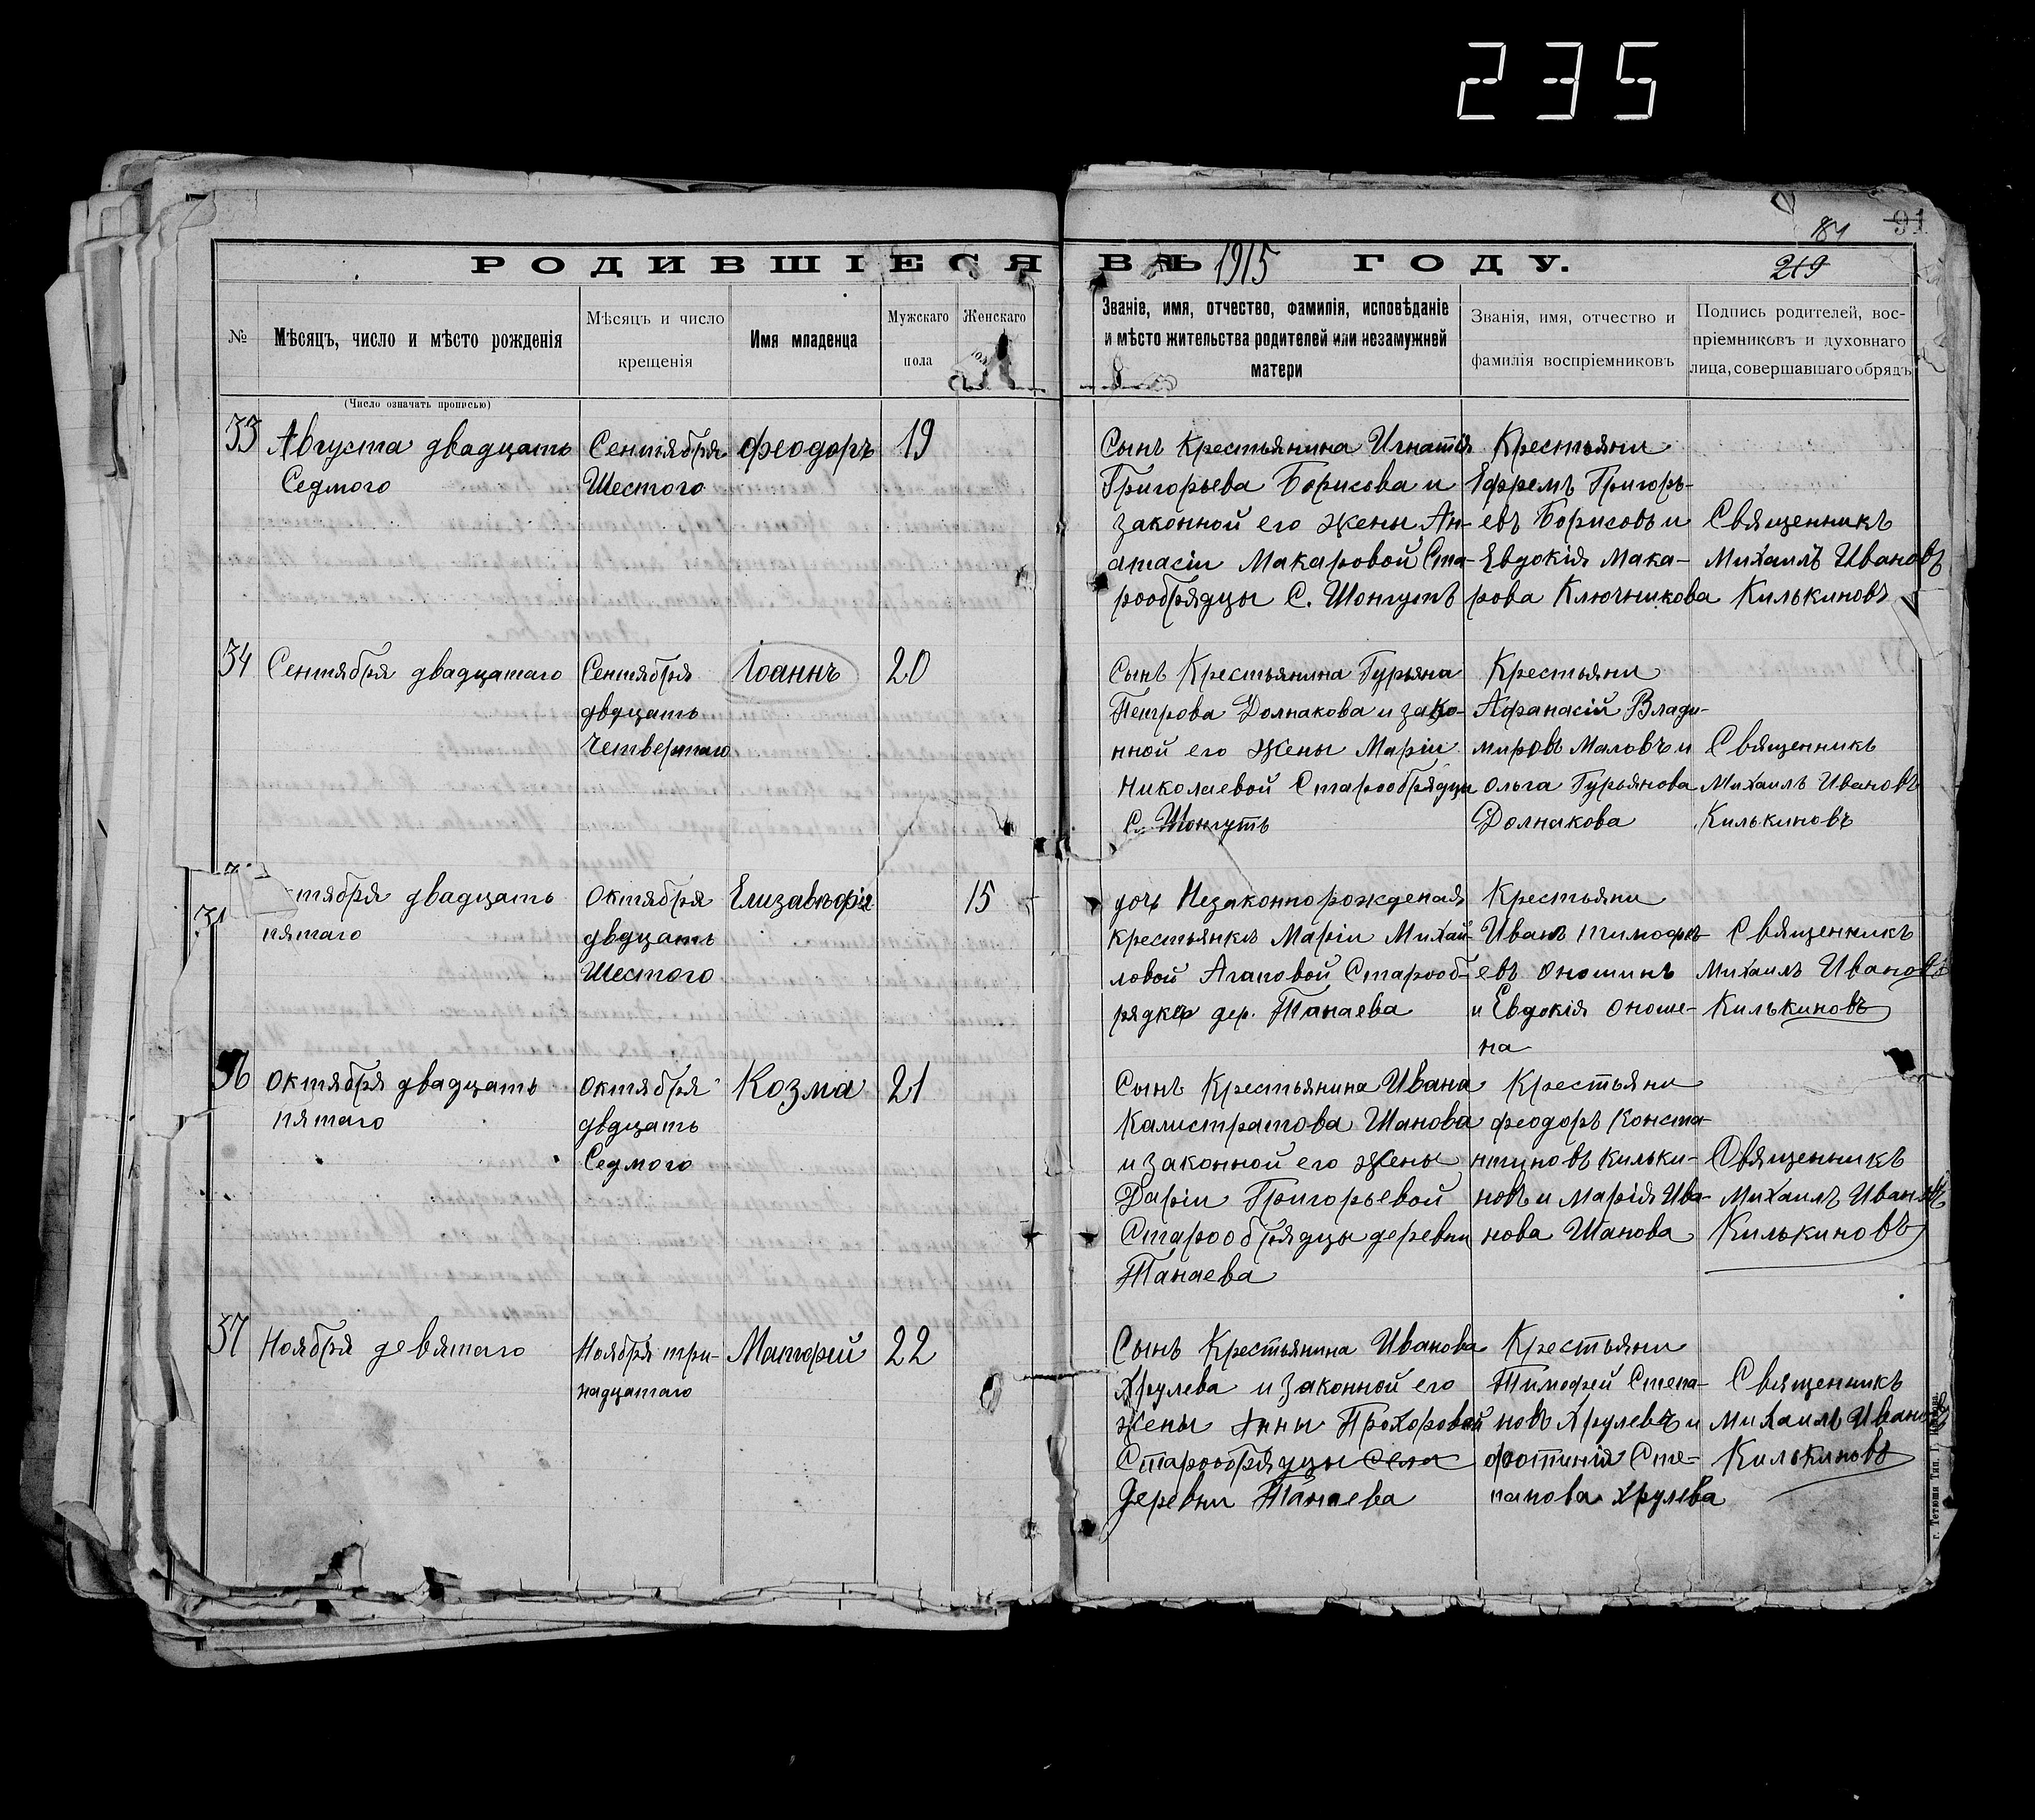 235
91
84
219
РОДИВШІЕСЯ ВЪ 1915 ГОДУ.
№
Мѣсяцъ, число и мѣсто рожденія
(Число означать прописью)
Мѣсяцъ и число
крещенія
Имя младенца
Мужскаго
пола
Женскаго
Званіе, имя, отчество, фамилія, исповѣданіе
и мѣсто жительства родителей или незамужней
матери
Званія, имя, отчество и
фамилія воспріемниковъ
Подпись родителей, вос-
пріемниковъ и духовнаго
лица, совершавшаго обрядъ
33
Августа двадцать
Седмого
Сентября
Шестого
Феодоръ
19
Сынъ Крестьянина Игнатія
Григорьева Борисова и
законной его жены Ан-
атасіи Макаровой Ста-
рообрядцы С. Шонгутъ
Крестьяни
Ефремъ Григорь-
евъ Борисовъ и
Евдокія Мака-
рова Ключникова
Священникъ
Михаилъ Ивановъ
Килькиновъ
34
Сентября двадцатаго
Сентября
двдцать
Четвертаго
Іоаннъ
20
Сынъ Крестьянина Гурьяна
Петрова Долнакова и зако-
нной его жены Маріи
Николаевой Старообрядцы
С. Шонгутъ
Крестьяни
Афанасій Влади-
мировъ Маловъ и
Ольга Гурьянова
Долнакова
Священникъ
Михаилъ Ивановъ
Килькиновъ
тября двадцать
пятаго
Октября
двдцать
Шестого
Елизавѣфія
15
дочь Незаконнорожденая
крестьянкѣ Маріи Михай-
ловой Агаповой Старооб-
рядкѣ дер. Танаева
Крестьяни
Иванъ Тимофѣ-
евъ Оношинъ
и Евдокія Оноше-
на
Священникъ
Михаилъ Ивановъ
Килькиновъ
36
Октября двадцать
пятаго
Октября
двдцать
Седмого
Козма
21
Сынъ Крестьянина Ивана
Калистратова Шанова
и законной его жены
Даріи Григорьевой
Старообрядцы деревни
Танаева
Крестьяни
Феодоръ Конста-
нтиновъ Кильки-
новъ и Марія Ива-
нова Шанова
Священникъ
Михаилъ Ивановъ
Килькиновъ
37
Ноября девятаго
Ноября три-
надцатаго
Матфей
22
Сынъ Крестьянина Иванова
Хрулева и законной его
жены Анны Прохоровой
Старообрядцы села
деревни Танаева
Крестьяни
Тимофей Степа-
новъ Хрулевъ и
Фотинія Сте-
панова Хрулева
Священникъ
Михаилъ Ивановъ
Килькиновъ